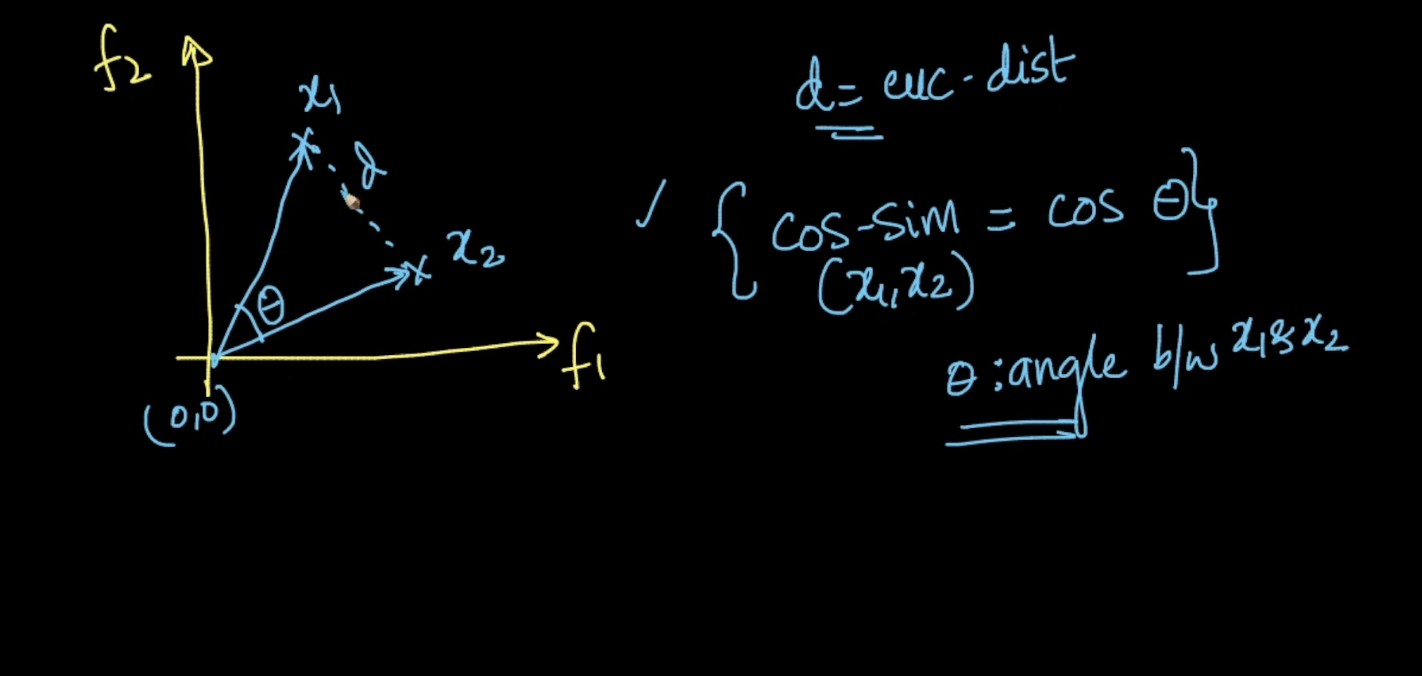 f2
x1
d
x2
θ
f1
(0,0)
d = euc-dist
✓ { cos-sim = cos θ}
(x1,x2)
θ : angle b/w x1 & x2